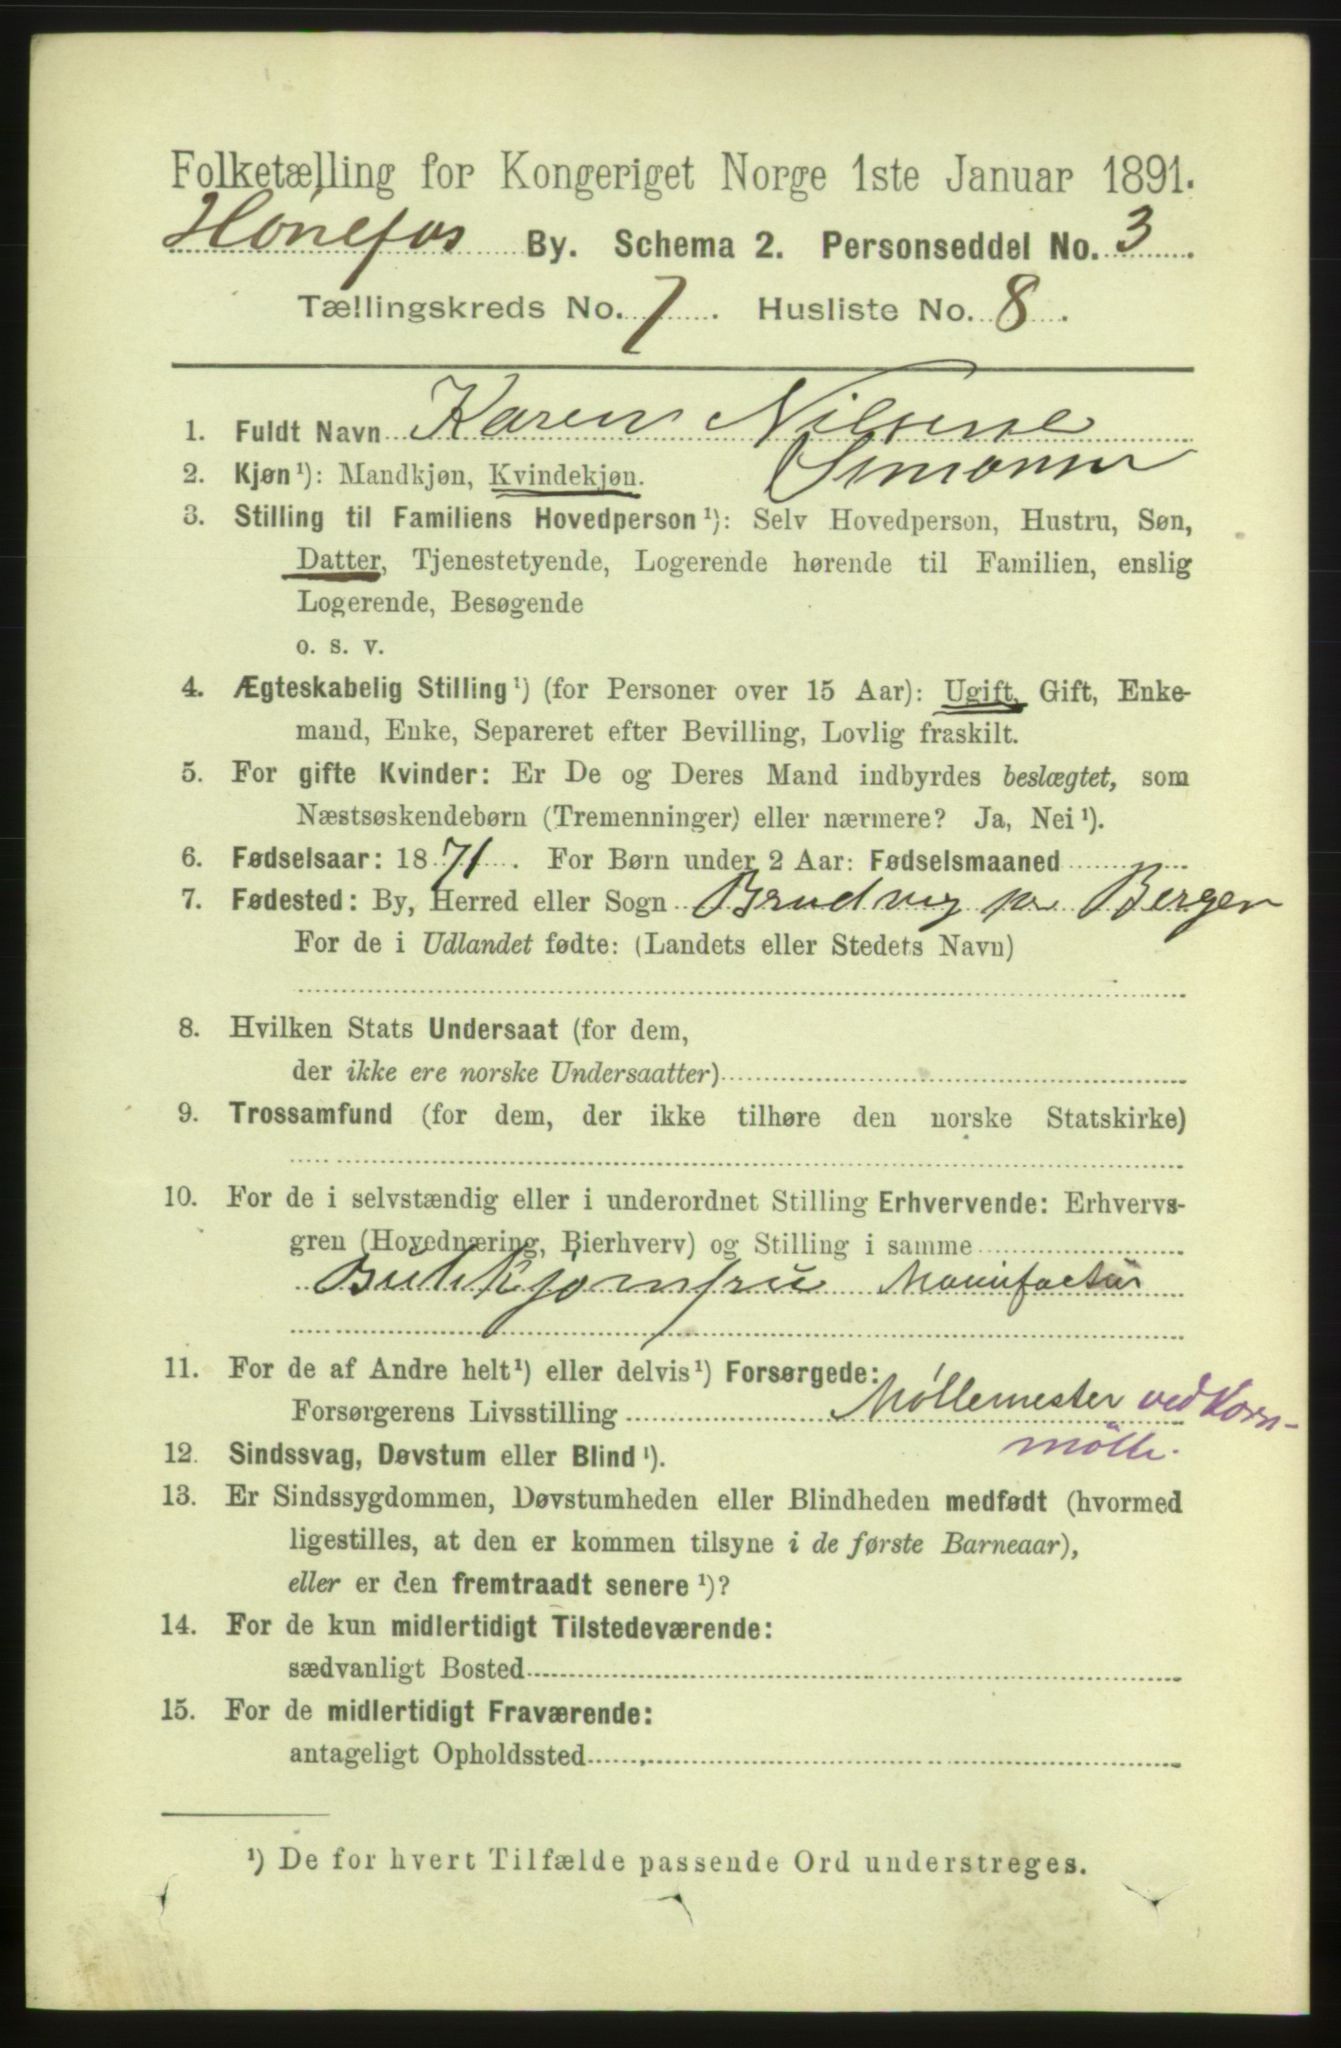 Folketælling for Kongeriget Norge 1ste Januar 1891.
Hönefos By. Schema 2. Personseddel No. 3
Tællingskreds No. 7. Husliste No. 8.
1. Fuldt Navn Karen Nilsine
Simonsen
2. Kjøn¹): Mandkjøn, Kvindekjøn.
3. Stilling til Familiens Hovedperson¹): Selv Hovedperson, Hustru, Søn,
Datter, Tjenestetyende, Logerende hørende til Familien, enslig
Logerende, Besøgende
o. s. v.
4. Ægteskabelig Stilling¹) (for Personer over 15 Aar): Ugift, Gift, Enke-
mand, Enke, Separeret efter Bevilling, Lovlig fraskilt.
5. For gifte Kvinder: Er De og Deres Mand indbyrdes beslægtet, som
Næstsøskendebørn (Tremenninger) eller nærmere? Ja, Nei¹).
6. Fødselsaar: 1871. For Børn under 2 Aar: Fødselsmaaned
7. Fødested: By, Herred eller Sogn Brudvig pr Bergen
For de i Udlandet fødte: (Landets eller Stedets Navn)
8. Hvilken Stats Undersaat (for dem,
der ikke ere norske Undersaatter)
9. Trossamfund (for dem, der ikke tilhøre den norske Statskirke)
10. For de i selvstændig eller i underordnet Stilling Erhvervende: Erhvervs-
gren (Hovednæring, Bierhverv) og Stilling i samme
Butikjomfru Manufactur
11. For de af Andre helt¹) eller delvis¹) Forsørgede:
Forsørgerens Livsstilling Möllemester ved Korn-
mölle.
12. Sindssvag, Døvstum eller Blind¹).
13. Er Sindssygdommen, Døvstumheden eller Blindheden medfødt (hvormed
ligestilles, at den er kommen tilsyne i de første Barneaar),
eller er den fremtraadt senere¹)?
14. For de kun midlertidigt Tilstedeværende:
sædvanligt Bosted
15. For de midlertidigt Fraværende:
antageligt Opholdssted
¹) De for hvert Tilfælde passende Ord understreges.